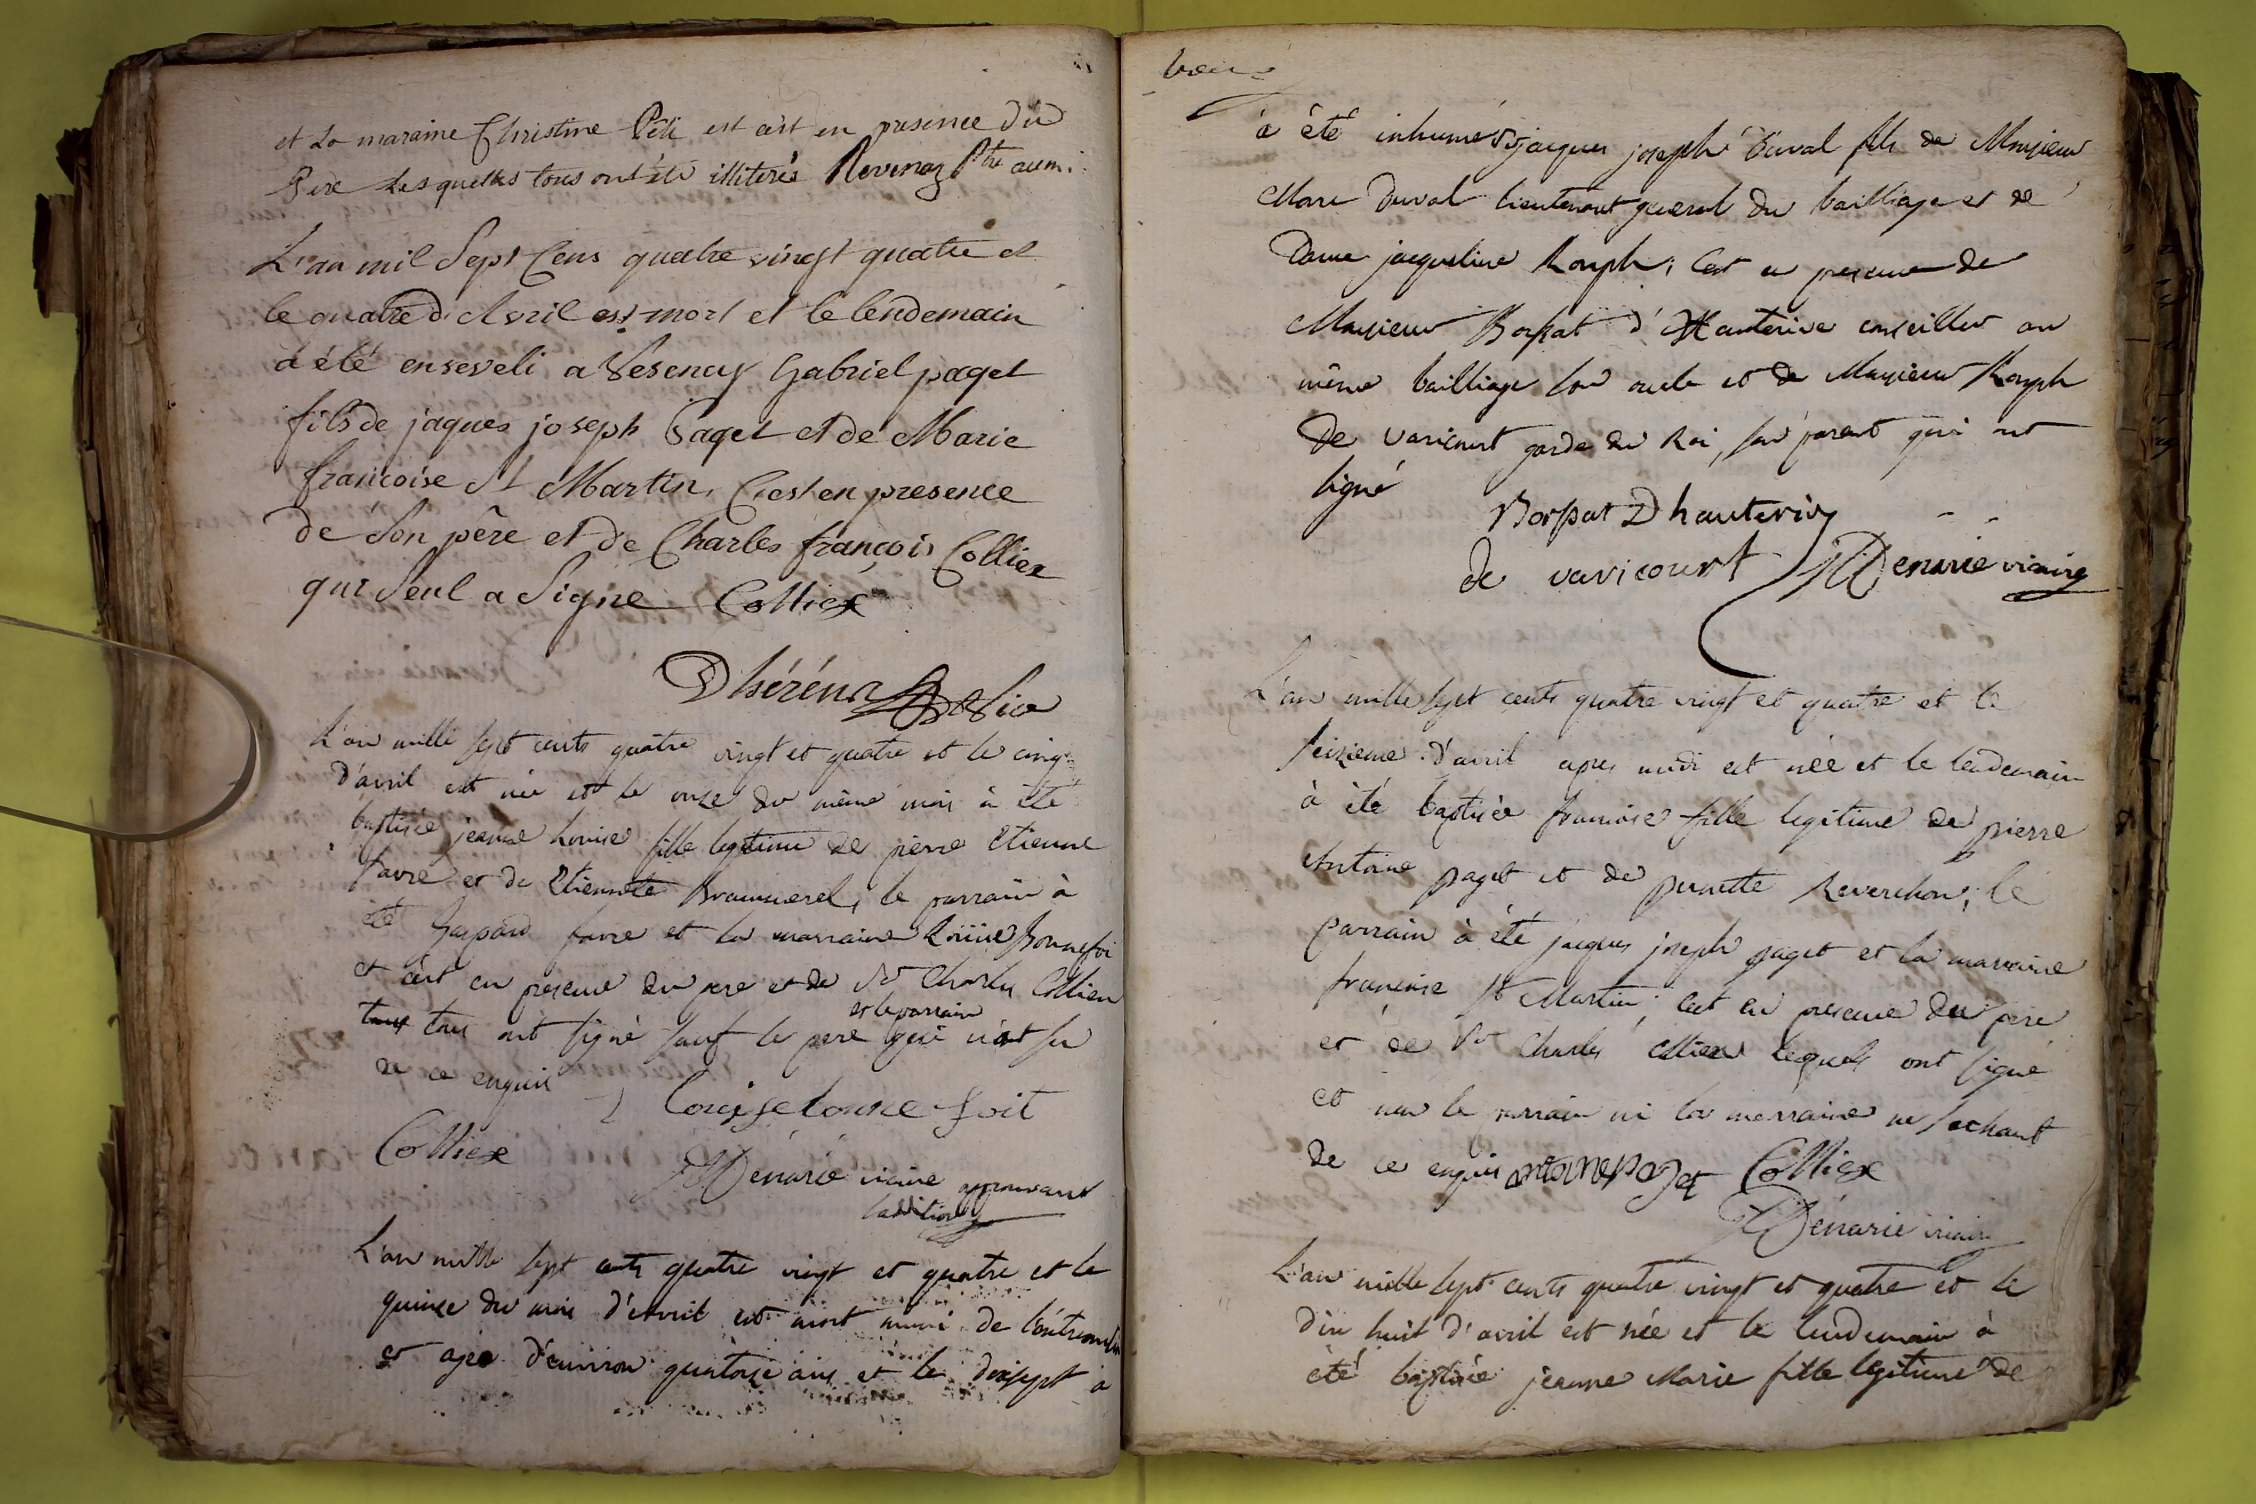 et La maraine Christine Péli est cést en presence Du
Pere Lesquelles tous ont été illiterés Revenaz Ptre aum.
L'an mil Sept Cens quatre vingt quatre et
le quatre d'Avril est mort et le lendemain
à été enseveli a Vesency Gabriel paget
fils de jaques joseph Paget et de Marie
francoise St Martin, C'est en presence
de Son père et de Charles françois Colliex
qui Seul a Signe Colliex
L'an mille sept cents quatre vingt et quatre et le cinq
D'avril est née et le onze du même mois à été
baptisée jeanne Louise fille legitime de pierre Etienne
favre et de Etiennete le parrain à
été Gaspard favre et la marraine Louise Bonnefoi
et c'est en presence du pere et de Sr Charles Colliex
et le parrain
tous ont signé sauf le pere qui n'ont su
de ce enquis Louise bonne foit
Colliex
Dénarié vicaire approuvant
l'addition
L'an mille sept cents quatre vingt et quatre et le
quinze du mois d'avril est mort muni de l'éxtreme
et agé d'environ quatorze ans et le dixsept à
à été inhumé Sr jacques joseph Duval fils de Monsieur
Marc Duval lieutenant general du bailliage et de
Dame jacqueline Rouph; c'est en presence de
Monsieur Borsat d'Hauterive conseiller au
même bailliage son oncle et de Monsieur Rouph
De varicourt garde du Roi, son parent qui ont
signé
Borsat Dhauterive
de varicourt Dénarié vicaire
L'an mille sept cents quatre vingt et quatre et le
seizieme d'avril apres midi est née et le lendemain
à été baptisée francoise fille legitime de pierre
Antoine paget et de pernette Reverchon; le
parrain à été jacques joseph paget et la marraine
francoise St Martin; c'est en presence du pere
et de Sr Charles Colliex lesquels ont signé
et non le parrain ni la marraine ne sachant
de ce enquis antone paget Colliex
Dénarié vicaire
L'an mille sept cents quatre vingt et quatre et le
dix huit d'avril est née et le lendemain à
été baptisée jeanne Marie fille legitime de